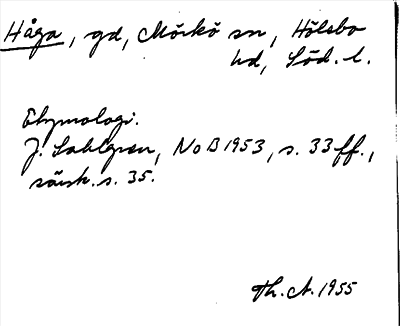 Håga, gd, Mörkö sn, Hölebo
hd, Söd. l.
Etymologi.
J. Sahlgren, NoB 1953, s. 33 ff.,
särsk. s. 35.
Th. A. 1955